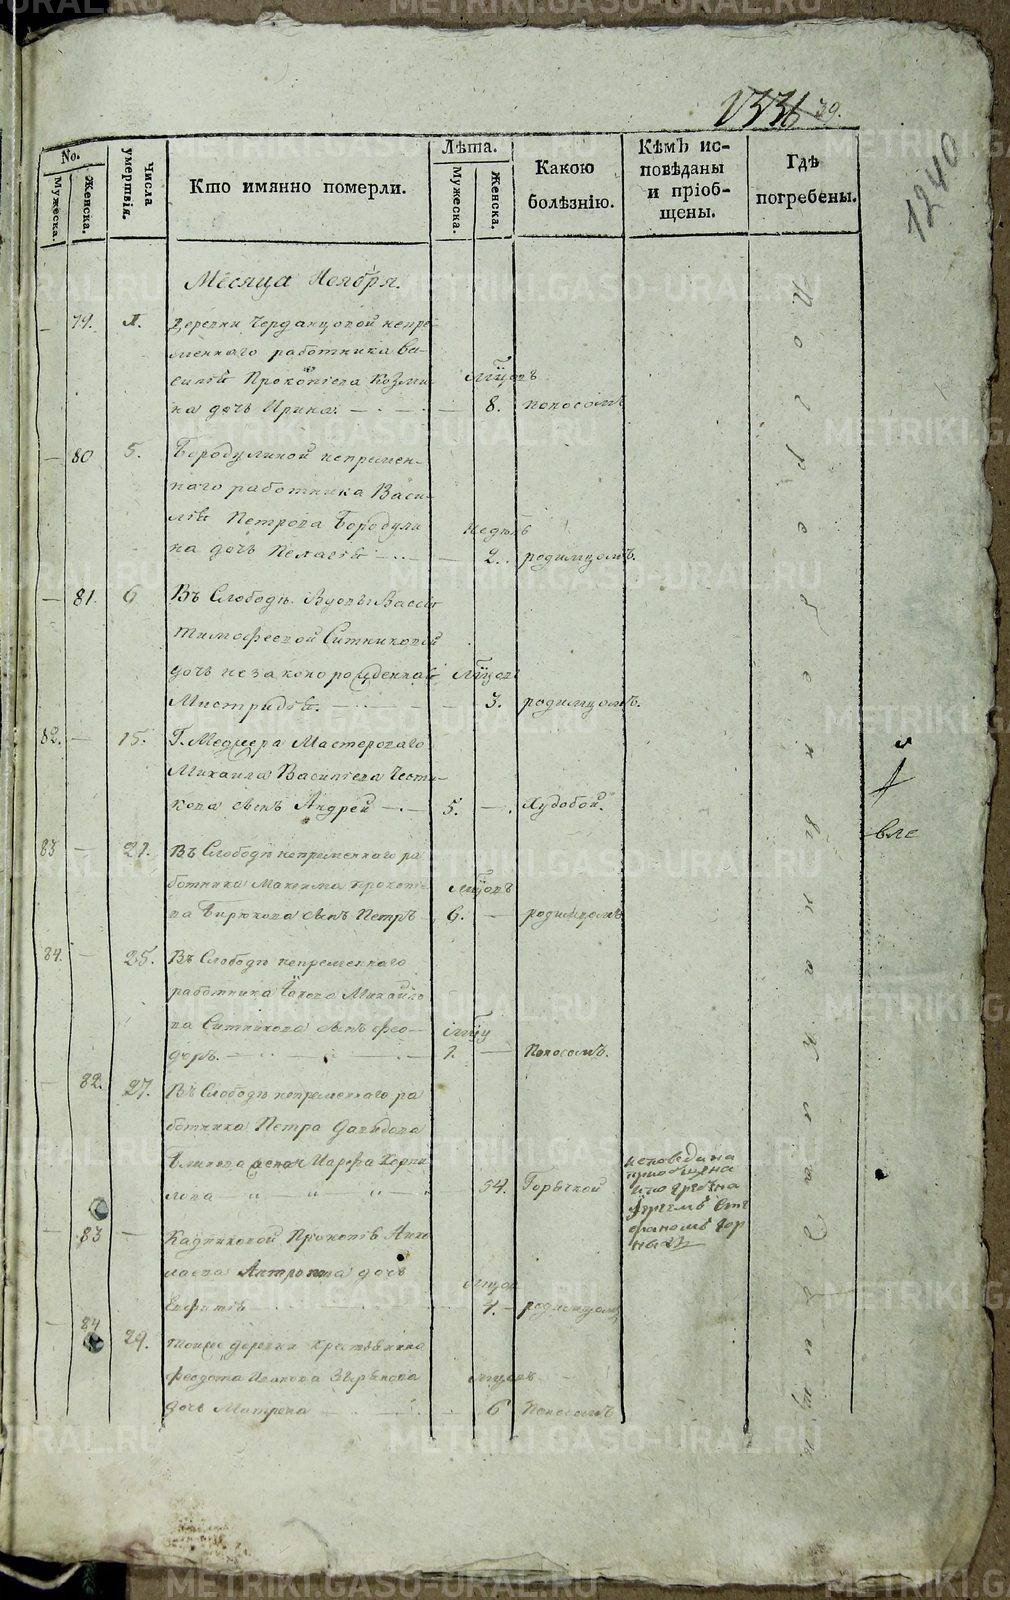 1336 39.
1240
No.
Мужеска.
Женска.
Числа умертвія.
Кто имянно померли.
Лѣта.
Мужеска.
Женска.
Какою болѣзнію.
Кѣмъ исповѣданы и пріобщены.
Гдѣ погребены.
Месяца Ноября.
79. Деревни Черданцовой непре-
менного работника Ва-
силья Прокопьева Козми- мцовъ
на дочь Ирина. 8. поносомъ
80 5. Бородулиной непремен-
наго работника Васи-
лья Петрова Бородули- недѣль
на дочь Пелагея 2. родимцомъ.
81. 6 Въ Слободѣ Вдовы Вассы
Тимофеевой Ситниковой
дочь незаконорожденная мцовъ
3. родимцомъ.
82. 15. Мастероваго
Михаила Васильева
кова сынъ Андрей 5. Худобой.
83 21. Въ Слободѣ непременнаго ра
ботника Максима Прокопье мцовъ
ва Бирюкова сынъ Петръ 6. родимцомъ
84. 25. Въ Слободѣ непременнаго
работника Якова Михайло
ва Ситникова сынъ Фео- мцу
доръ. 1. Поносомъ.
82. 27. Въ Слободѣ непременнаго ра
ботника Петра Давыдова
Блинова жена Марфа Корни
лова 54. Горячкой
исповедана
приобщена
и погребена
83 Кадниковой Прокопья
лаева Антропова дочь мцов
Евфимья 4. родимцомъ
84 29. тоже деревни крестьянина
Феодота Иванова Зырянова мцовъ
дочь Матрена 6 Поносомъ
Погребены на кладбищѣ.
METRIKI.GASO-URAL.RU